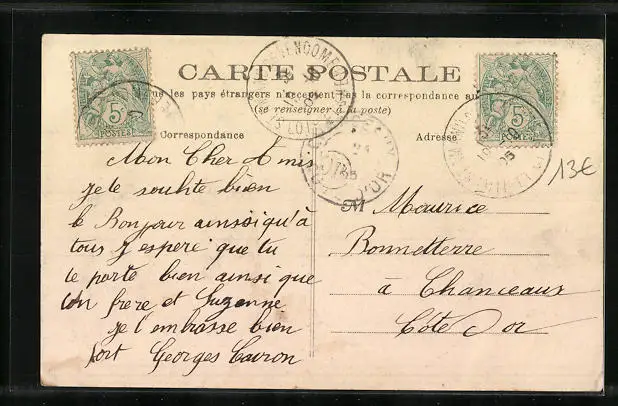 CARTE POSTALE
les pays étrangers n'acceptent pas la correspondance au
(se renseigner à la poste)
Correspondance
Adresse
5c
POSTES
5c
POSTES
Mon Cher Amis
je te souhte bien
le Bonjour ainssi qu'à
tous J espere que tu
te porte bien ainsi que
ton frere et Suzanne
je t'embrasse bien
fort Georges Cairon
M Maurice
Bonnetterre
à Chanceaux
Côte d'or
D'OR
13€